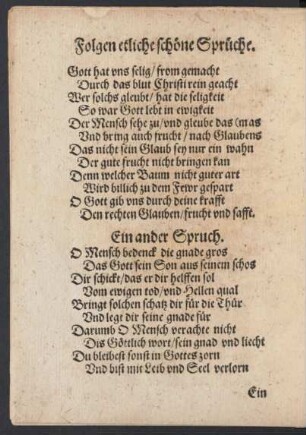 Folgen etliche schöne Sprüche.
Gott hat vns selig/ from gemacht
Durch das blut Christi rein geacht
Wer solchs gleubt/ hat die seligkeit
So war Gott lebt in ewigkeit
Der Mensch sehe zu/ vnd gleube das
Vnd bring auch frucht/ nach Glaubens mas
Das nicht sein Glaub sey nur ein wahn
Der gute frucht nicht bringen kan
Denn welcher Baum nicht guter art
Wird billich zu dem Fewr gespart
O Gott gib vns durch deine krafft
Den rechten Glauben/ frucht vnd safft.
Ein ander Spruch.
O Mensch bedenck die gnade gros
Das Gott sein Son aus seinem schos
Dir schickt/ das er dir helffen sol
Vom ewigen tod/ vnd Hellen qual
Bringt solchen schatz dir für die Thür
Vnd legt dir seine gnade für
Darumb O Mensch verachte nicht
Dis Göttlich wort/ sein gnad vnd liecht
Du bleibest sonst in Gottes zorn
Vnd bist mit Leib vnd Seel verlorn
Ein